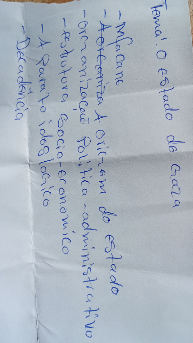 Tema: O estado do Gaza
- Mfacane
- Formação A Origem do estado
- Organização Política-administrativo
- estrutura sócio-economico
- A Parato ideologico
- Decadência